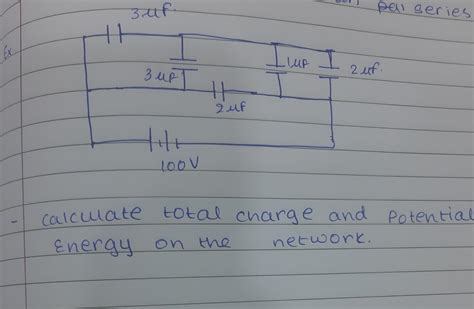 par series
Ex
3μf.
3μf
1μf
2μf.
2μf
100V
- calculate total charge and Potential
Energy on the network.